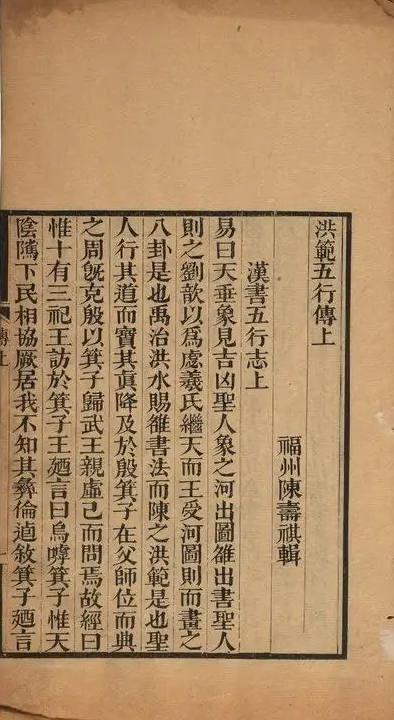 洪範五行傳上
福州陳壽祺輯
漢書五行志上
易曰天垂象見吉凶聖人象之河出圖雒出書聖人
則之劉歆以爲虙羲氏繼天而王受河圖則而畫之
八卦是也禹治洪水賜雒書法而陳之洪範是也聖
人行其道而寶其眞降及於殷箕子在父師位而典
之周旣克殷以箕子歸武王親虛己而問焉故經曰
惟十有三祀王訪於箕子王廼言曰烏嘑箕子惟天
陰隲下民相協厥居我不知其彝倫逌敘箕子廼言
傳上